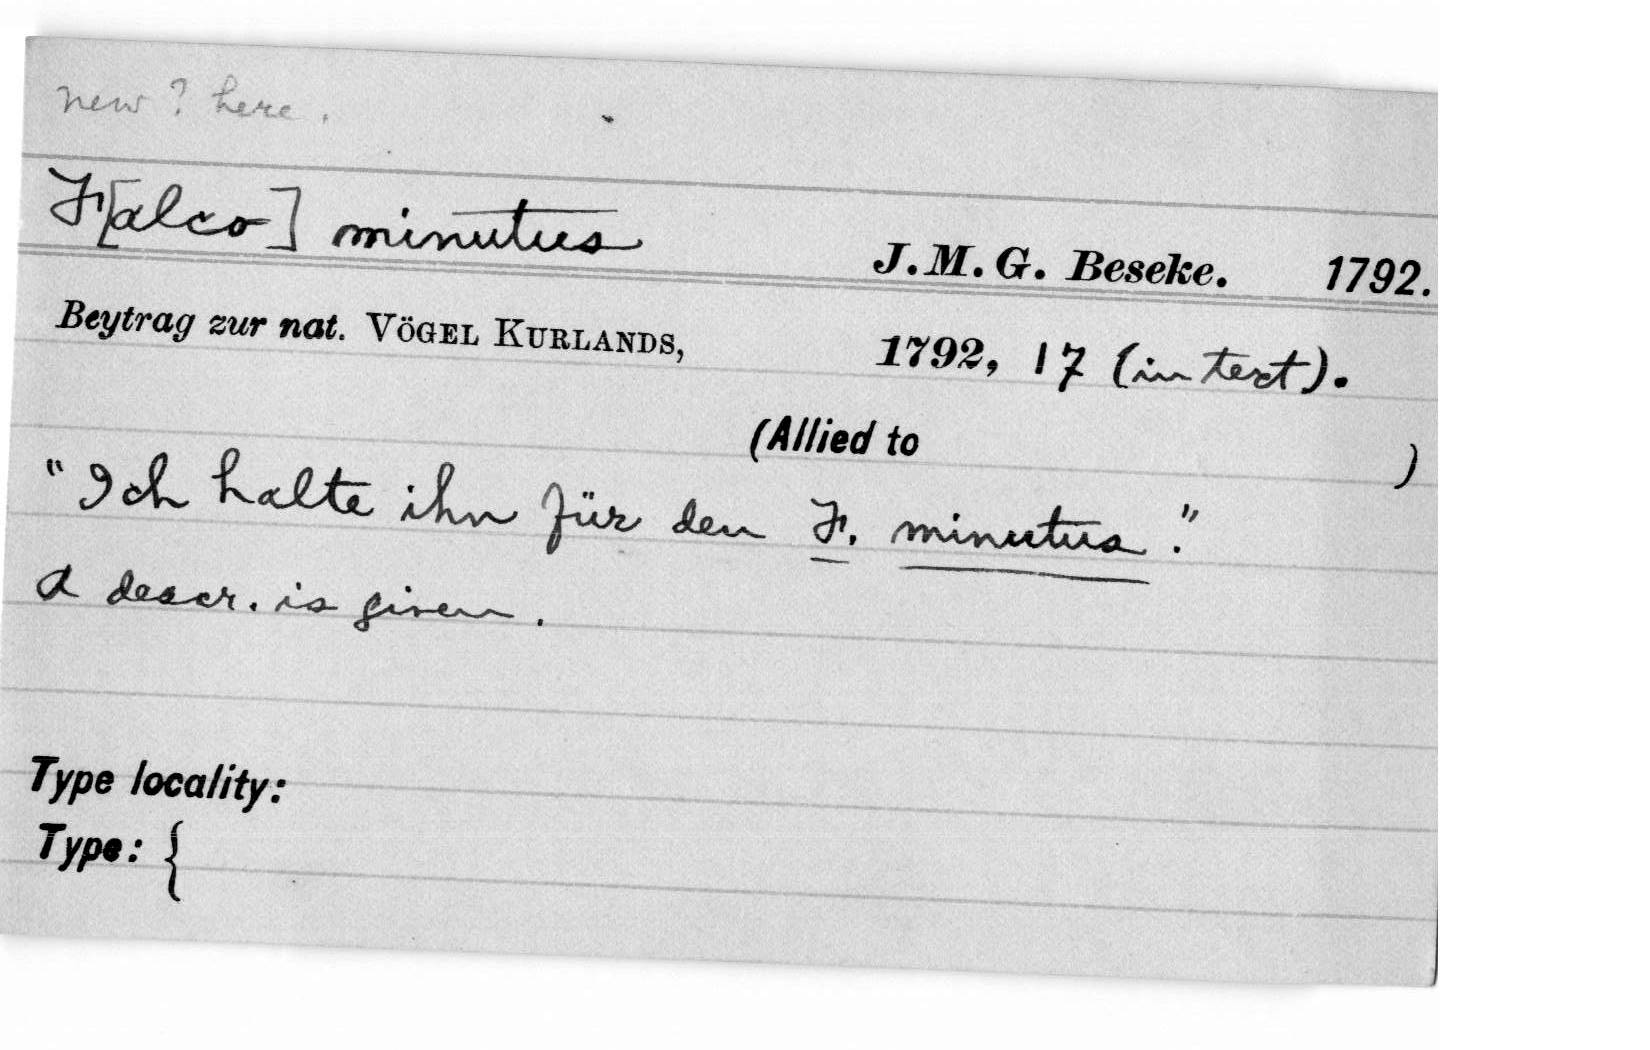 new? here.
F[alco] minutus J. M. G. Beseke. 1792.
Beytrag zur nat. VÖGEL KURLANDS, 1792, 17 (in text).
(Allied to )
"Ich halte ihn für den F. minutus."
A descr. is given.
Type locality:
Type: {